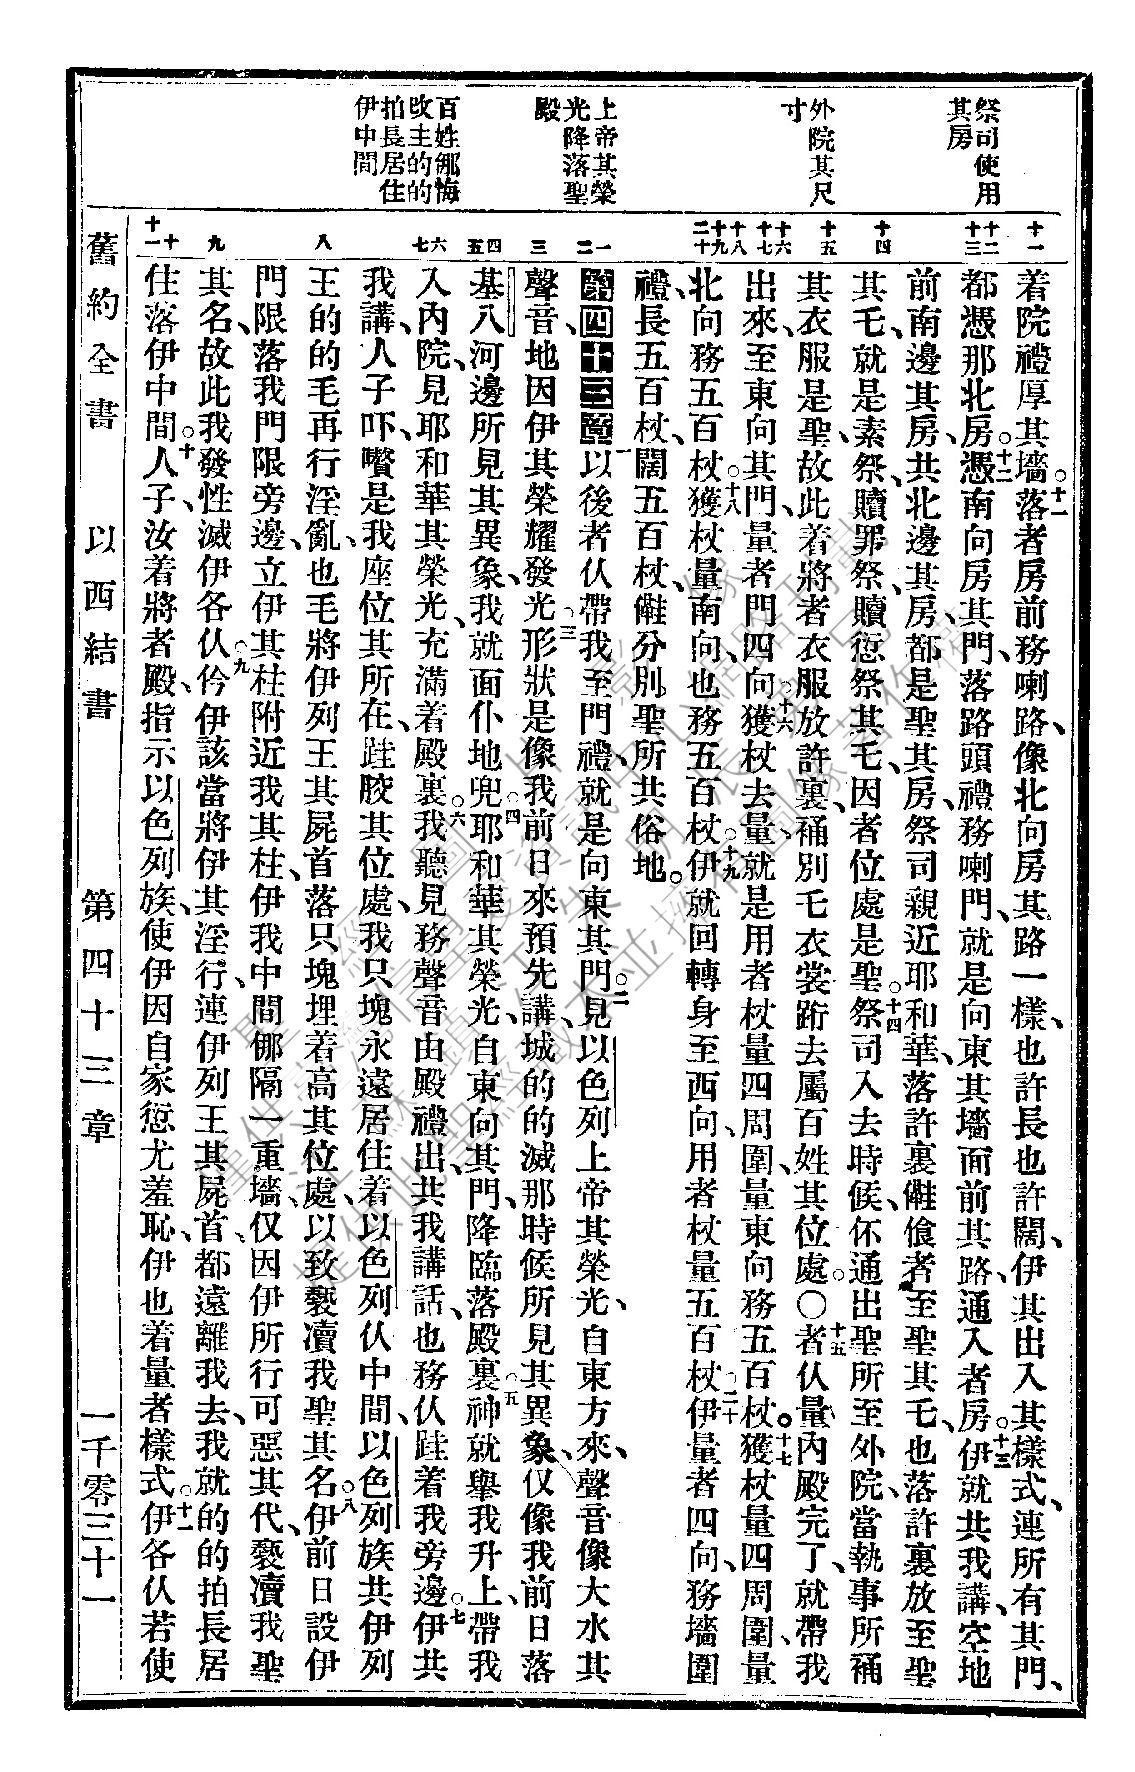 祭司使用
其房
外院其尺
寸
上帝其榮
光降落聖
殿
百姓𨚫悔
改主的的
拍長居住
伊中間
十一
十二
十三
十四
十五
十六
十七
十八
十九
二十
一
二
三
四
五
六
七
八
九
十
十一
着院禮厚其墻、落者房前務喇路、像北向房其路一樣、也許長也許闊、伊其出入其樣式、連所有其門、
都憑那北房。十二憑南向房其門、落路頭禮務喇門、就是向東其墻面前其路、通入者房。十三伊就共我講、空地
前南邊其房、共北邊其房、都是聖其房、祭司親近耶和華、落許裏𣍐飧者至聖其乇、也落許裏放至聖
其乇、就是素祭、贖罪祭、贖愆祭其乇、因者位處是聖。十四祭司入去時候、伓通出聖所至外院、當執事所裲
其衣服是聖、故此着將者衣服放許裏、裲別乇衣裳跻去屬百姓其位處。〇十五者仈量內殿完了、就帶我
出來、至東向其門、量者門四向。十六獲杖去量、就是用者杖量四周圍、量東向務五百杖。十七獲杖量四周圍、量
北向務五百杖。十八獲杖量南向、也務五百杖。十九伊就回轉身至西向、用者杖量五百杖。二十伊量者四向、務墻圍
禮、長五百杖、闊五百杖、𣍐分別聖所共俗地。
第四十三章一以後者仈帶我至門禮、就是向東其門。二見以色列上帝其榮光、自東方來、聲音像大水其
聲音、地因伊其榮耀、發光。三形狀是像我前日來預先講、城的的滅那時候所見其異象、仅像我前日落
基八河邊所見其異象、我就面仆地兜。四耶和華其榮光、自東向其門、降臨落殿裏。五神就舉我升上、帶我
入內院、見耶和華其榮光、充滿着殿裏。六我聽見務聲音由殿禮出、共我講話、也務仈跬着我旁邊。七伊共
我講、人子吓、嚽是我座位其所在、跬骹其位處、我只塊永遠居住着以色列仈中間、以色列族共伊列
王的的毛再行淫亂、也毛將伊列王其屍首落只塊埋着高其位處、以致褻瀆我聖其名。八伊前日設伊
門限落我門限旁邊、立伊其柱附近我其柱、伊我中間𨚫隔一重墻、仅因伊所行可惡其代、褻瀆我聖
其名、故此我發性滅伊各仈。九伱伊該當將伊其淫行、連伊列王其屍首、都遠離我去、我就的的拍長居
住落伊中間。十人子、汝着將者殿、指示以色列族、使伊因自家愆尤羞恥、伊也着量者樣式。十一伊各仈若使
舊約全書　以西結書　第四十三章　一千零三十一